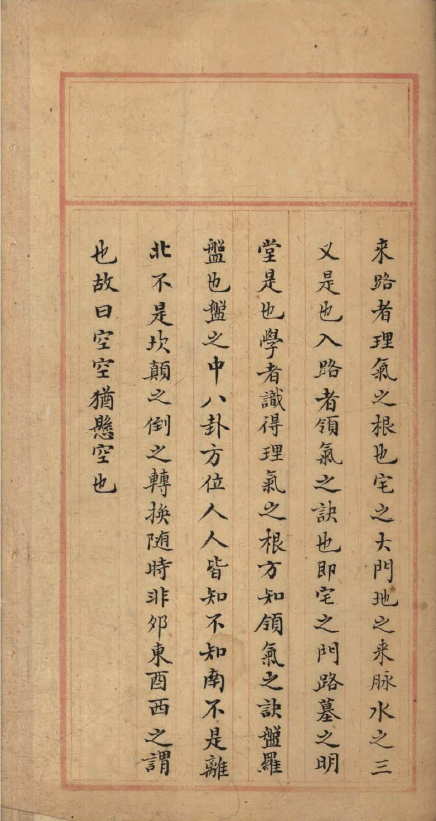 来路者理氣之根也宅之大門地之来脉水之三
叉是也入路者領氣之訣也即宅之門路墓之明
堂是也學者識得理氣之根方知領氣之訣盤羅
盤也盤之中八卦方位人人皆知不知南不是離
北不是坎顛之倒之轉換随時非夘東酉西之謂
也故曰空空猶懸空也